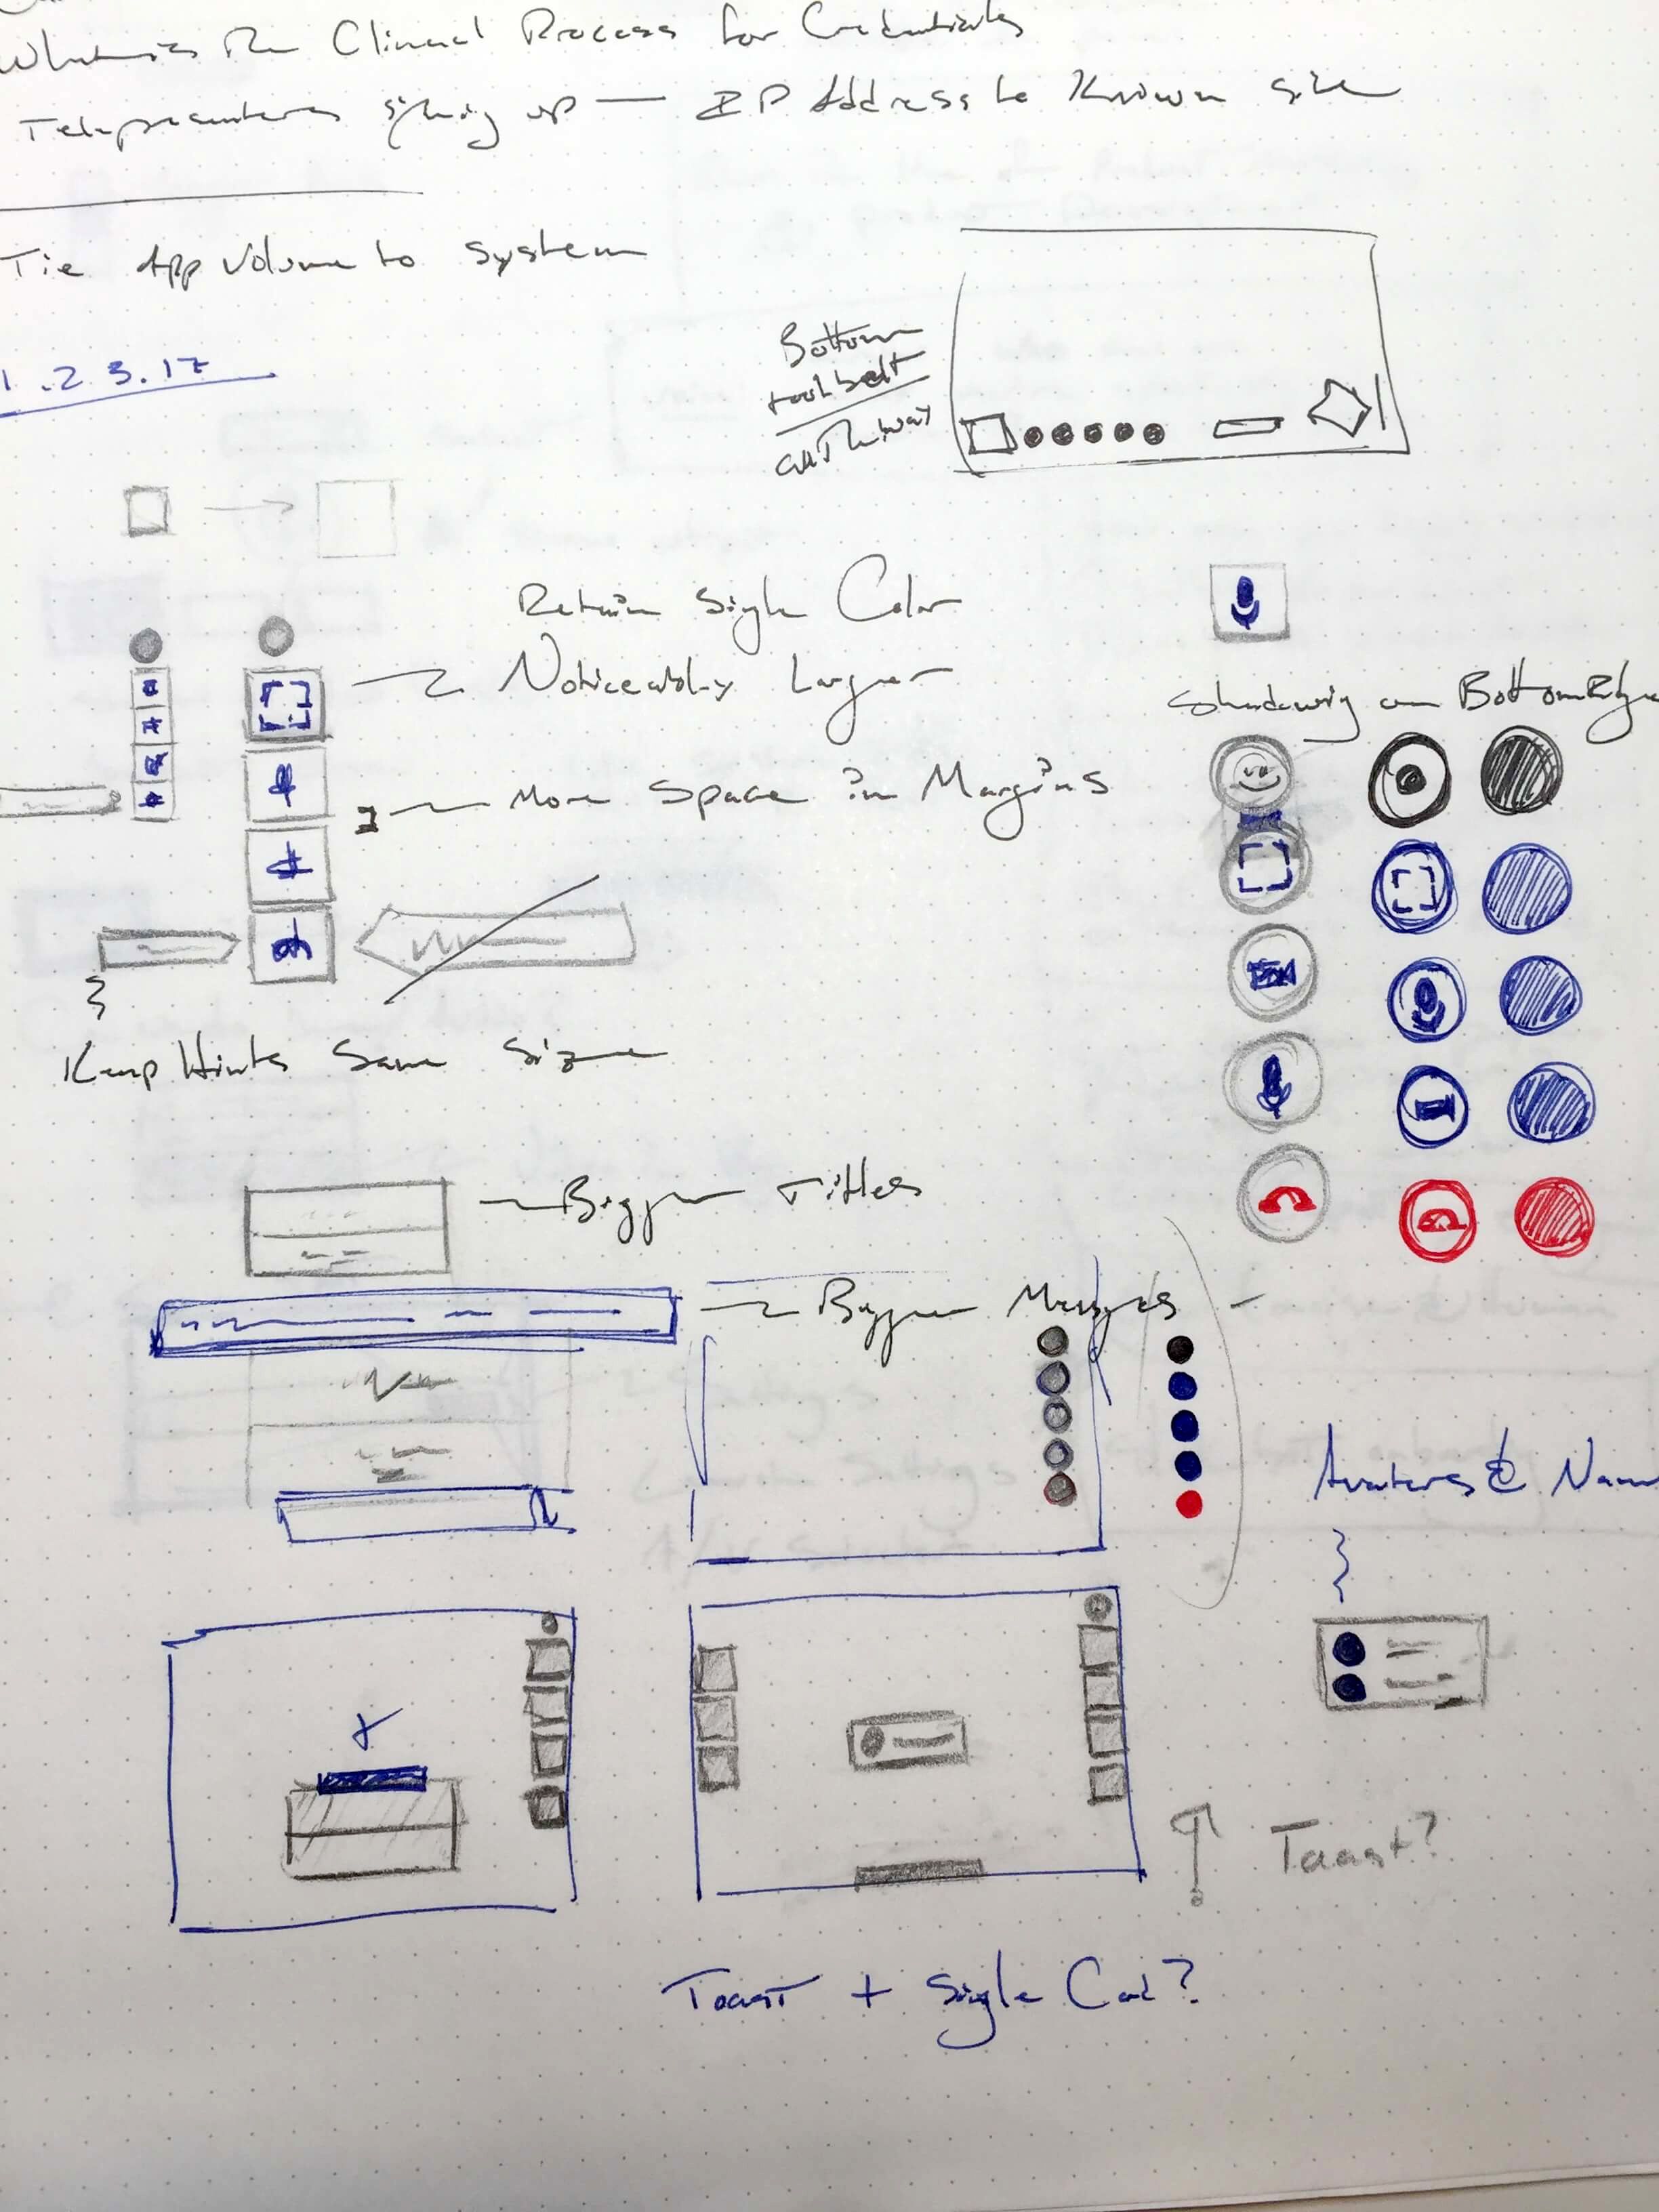 What is the Clinical Process for Credentials
Telepresenters signing up — IP Address to Known site
Tie App Volume to System
Bottom
toolbelt
all the way
1.23.17
Retain Single Color
Noticeably Larger
Shadowing on Bottom Edge
More Space in Margins
Keep Hints Same Size
Bigger Titles
Bigger
Avatars & Name
Toast?
Toast + Single Card?